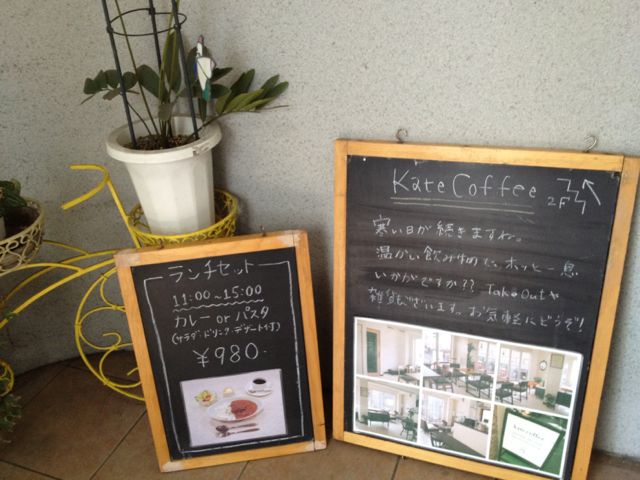 ランチセット
11:00~15:00
カレー or パスタ
(サラダ・ドリンク・デザート付)
¥980.
Kate Coffee
2F
寒い日が続きますね。
温かい飲み物で、ホッと一息
いかがですか?? TakeOutや
雑貨もございます。お気軽にどうぞ!